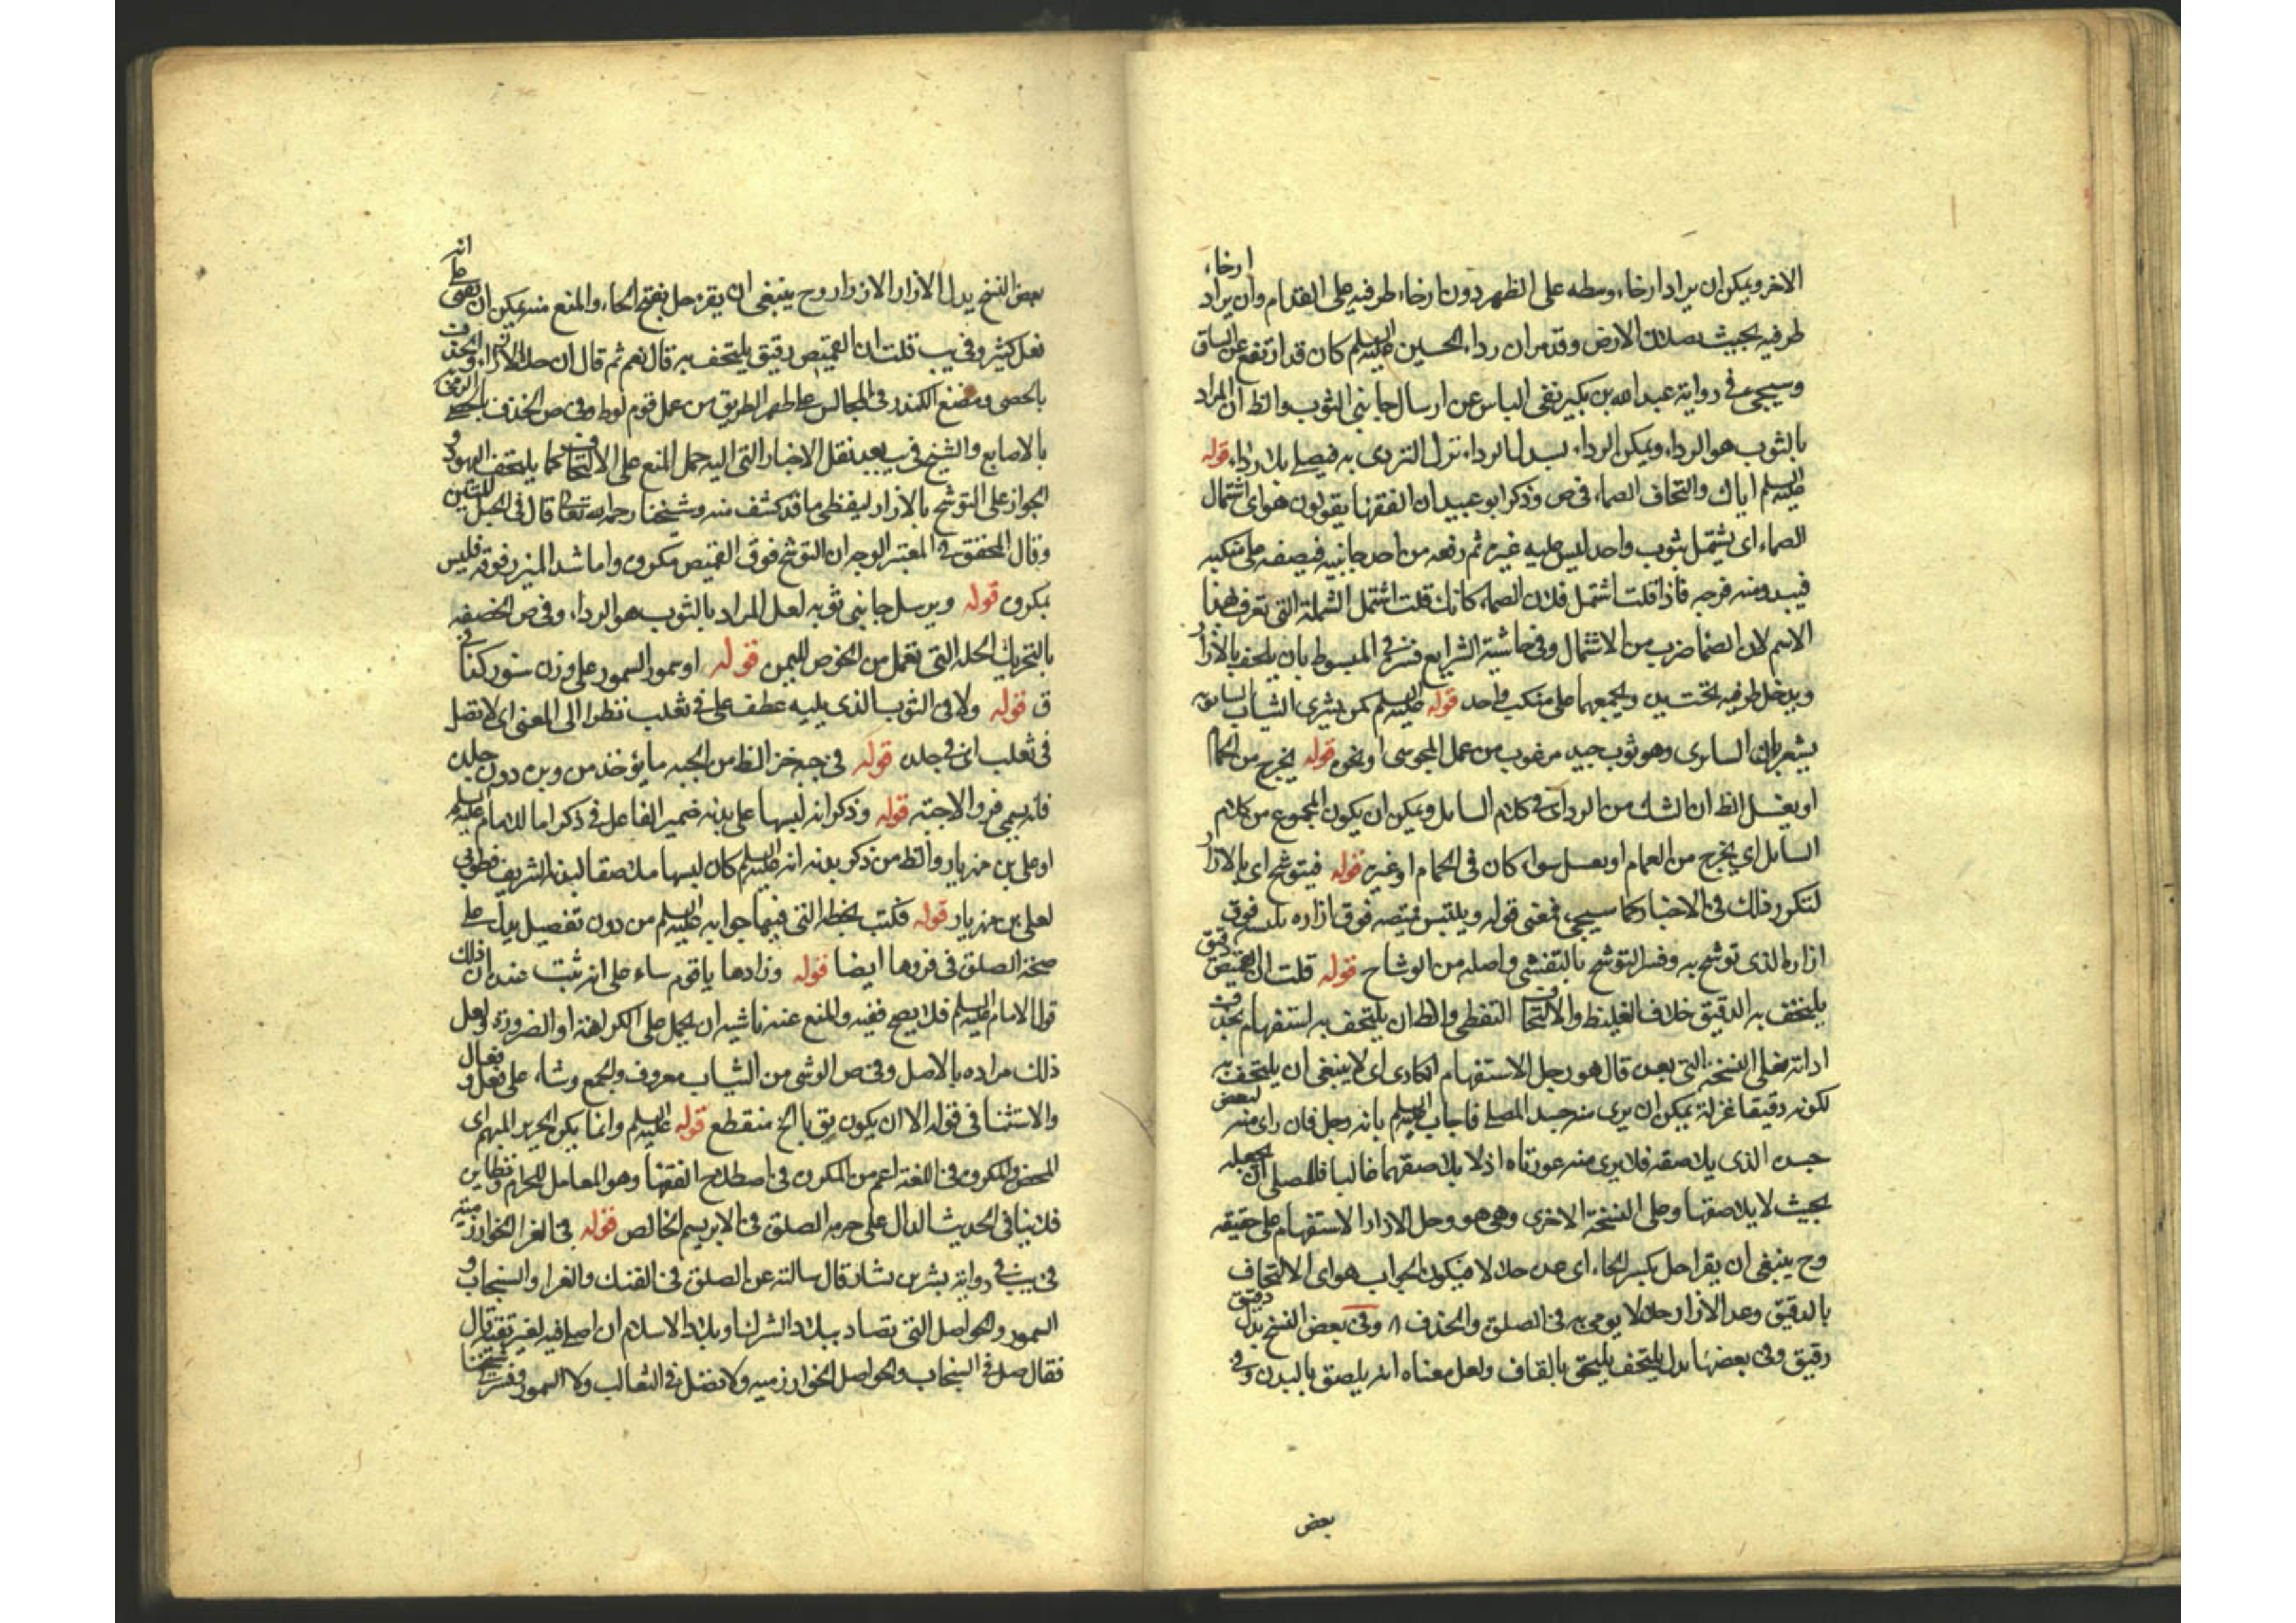 الاخر ويمكن ان يراد ارخاء وسطه على الظهر دون ارخاء طرفيه على القدام وان يراد ارخاء
طرفيه بحيث يصلان الارض وقد مر ان رداء الحسين عليه السلم كان قد ارتفع عن الساق
وسيجيء في رواية عبد الله بن بكير نفى الباس عن ارسال جانبى الثوب والظ ان المراد
بالثوب هو الرداء ويمكن الرداء بسدل الرداء ترك التردى به فيصلى بلا رداء قوله
عليه السلم اياك والتحاف الصماء في ص وذكر ابو عبيد ان الفقها يقولون هو اى اشتمال
الصماء اى يشتمل بثوب واحد ليس عليه غيره ثم رفعه من احد جانبيه فيضعه على منكبيه
فيبدو منه فرجه فاذا قلت اشتمل فلان الصماء كانك قلت اشتمل الشملة التى تعرف بهذا
الاسم لان الصما ضرب من الاشتمال وفي حاشية الشرايع فسر في المبسوط بان يلتحف بالازار
ويدخل طرفيه تحت يده ويجمعهما على منكب واحد قوله عليه السلم كمن يشرى الثياب السابريه
او يغسل الظ ان الشك من الراوى في كلام السايل ويمكن ان يكون المجموع من كلام
السايل اى يخرج من الحمام او يغسل سواء كان في الحمام او غيره قوله فيتوشح اى بالازار
لتكرر ذلك في الاخبار كما سيجيء فمعنى قوله ويلبس قميصه فوق ازاره يلبسه فوق
ازاره الذى توشح به وفسر التوشح بالتغشى واصله من الوشاح قوله قلت ان القميص رقيق
يلتحف به الدقيق خلاف الغليظ والالتحاف التغطى والظ ان يلتحف به استفهام بحذف
اداته فعلى النسخة التى بعده قال هو وحل الاستفهام انكارى اى لا ينبغى ان يلتحف به
لكونه دقيقا غزلة يمكن ان يرى منه جسد المصلى فاجاب عليه السلم بانه وحل فان راى منه لبعض
جسده الذى يلاصقه فلا يرى منه عورتاه اذ لا يلاصقهما غالبا فللمصلى ان يجعله
بحيث لا يلاصقها وعلى النسخة الاخرى وهى هو وحل الازار الاستفهام على حقيقه
وح ينبغى ان يقرا حل بكسر الحاء اى هى حلال لا فيكون الجواب هو اى الالتحاف
بالدقيق وعد الازار حلالا يومى به في الصلوة والحذف وفى بعض النسخ بدل دقيق
رقيق وفى بعضها بدل يلتحف يلتحق بالقاف ولعل معناه انه يلصق بالبدن وفى
بعض
بعض النسخ بدل الازار الازرار وح ينبغى ان يقرء حل بفتح الحاء والمنع منه يمكن ان يبقى على انه
فعل كثير وفي يب قلت ان القميص رقيق يلتحف به قال نعم ثم قال ان حل الازرار والخذف
بالحصى ومضغ الكندر في المجالس على ظهر الطريق من عمل قوم لوط وفى ص الخذف بالحصى الرمى
بالاصابع والشيخ في يب بعد نقل الاخبار التى اليه حمل المنع على الالتحاف كما يلتحف اليهود و
الجواز على التوشح بالازار ليغطى ما قد كشف منه وشيخنا رحمه الله تعالى قال في الحبل المتين
وقال المحقق في المعتبر الوجه ان التوشح فوق القميص مكروه واما شد الميزر فوقه فليس
بمكروه قوله ويرسل جانبى ثوبه لعل المراد بالثوب هو الرداء وفى ص الخصفه
بالتحريك الحلة التى تعمل من الخوص للتمر قوله او سمور السمور على وزن سنور كذا في
ق قوله ولا في الثوب الذى يليه عطف على في ثعلب نظرا الى المعنى اى لا تصل
في ثعلب اى في جلده قوله في جبة خز الظ من الجبه ما يؤخذ من وبره دون جلده
فانه يسمى فروا لا جبته قوله وذكر انه لبسها على بدنه ضمير الفاعل في ذكر اما للامام عليه السلم
او على بن مهزيار والظ من ذكر بدنه انه عليه السلم كان لبسها ملاصقا لبدنه الشريف فطوبى
لعلى بن مهزيار قوله فكتب بخطه التى فيها جوابه عليه السلم من دون تفصيل يدل على
صحة الصلوة في فروها ايضا قوله وزادها ياقوم بناء على انه ثبت عنده ان ذلك
قول الامام عليه السلم فلا يصح فقيه والمنع عنه ناشيه ان يحمل على الكراهة او الضرورة ولعل
ذلك مراده بالاصل وفى ص الوشى من الثياب معروف والجمع وشاء على فعل و فعال
والاستثنا في قوله الا ان يكون يق بالخ منقطع قوله عليه السلم وانما يكره الحرير المبهم اى
المحض والمكروه في اللغة اعم من المكروه في اصطلاح الفقها وهو المعامل للحرام ونظايره
فلا ينافى الحديث الدال على حرمه الصلوة في الابريسم الخالص قوله في الفرا الخوارزميه
في يب في رواية بشر بن بشار قال سالته عن الصلوة في الفنك والفرا والسنجاب و
السمور والحواصل التى تصاد ببلاد الشرك او بلاد الاسلام ان اصلى فيه لغير تقية قال
فقال صل في السنجاب والحواصل الخوارزميه ولا تصل في الثعالب ولا السمور وفسر شيخنا